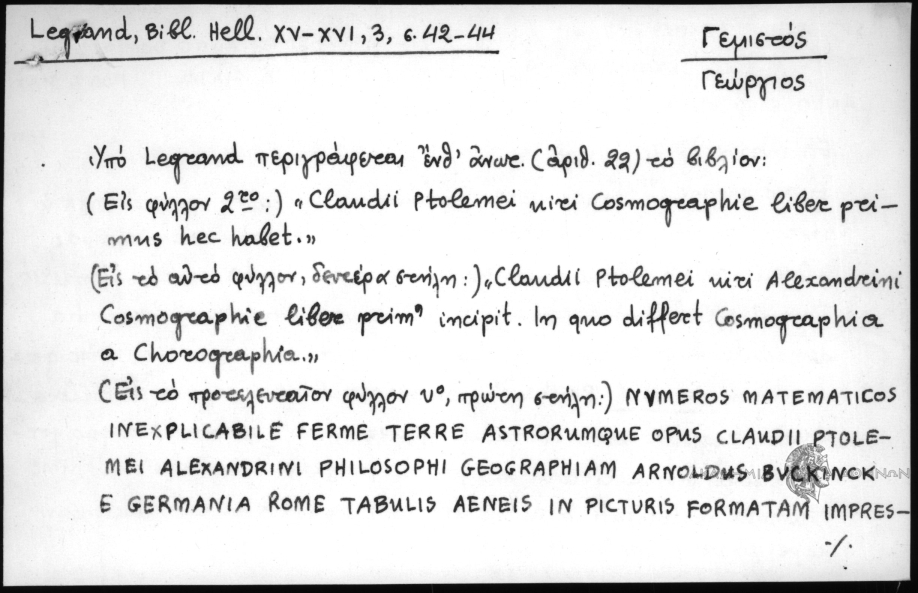 Legrand, Bibl. Hell. XV-XVI, 3, σ. 42-44
Γεμιστός
Γεώργιος
Ὑπό Legrand περιγράφεται ἔνθ' ἄνωτ. (ἀριθ. 22) τό βιβλίον:
(Εἰς φύλλον 2το:) "Claudii Ptolemei uiri Cosmographie liber pri-
mus hec habet."
(Εἰς τό αὐτό φύλλον, δευτέρα στήλη:) "Claudii Ptolemei uiri Alexandrini
Cosmographie liber prim⁹ incipit. In quo differt Cosmographia
a Chorographia."
(Εἰς τό προτελευταῖον φύλλον vº, πρώτη στήλη:) NVMEROS MATEMATICOS
INEXPLICABILE FERME TERRE ASTRORUMQUE OPUS CLAUDII PTOLE-
MEI ALEXANDRINI PHILOSOPHI GEOGRAPHIAM ARNOLDUS BVCKINCK
E GERMANIA ROME TABULIS AENEIS IN PICTURIS FORMATAM IMPRES-
-/.